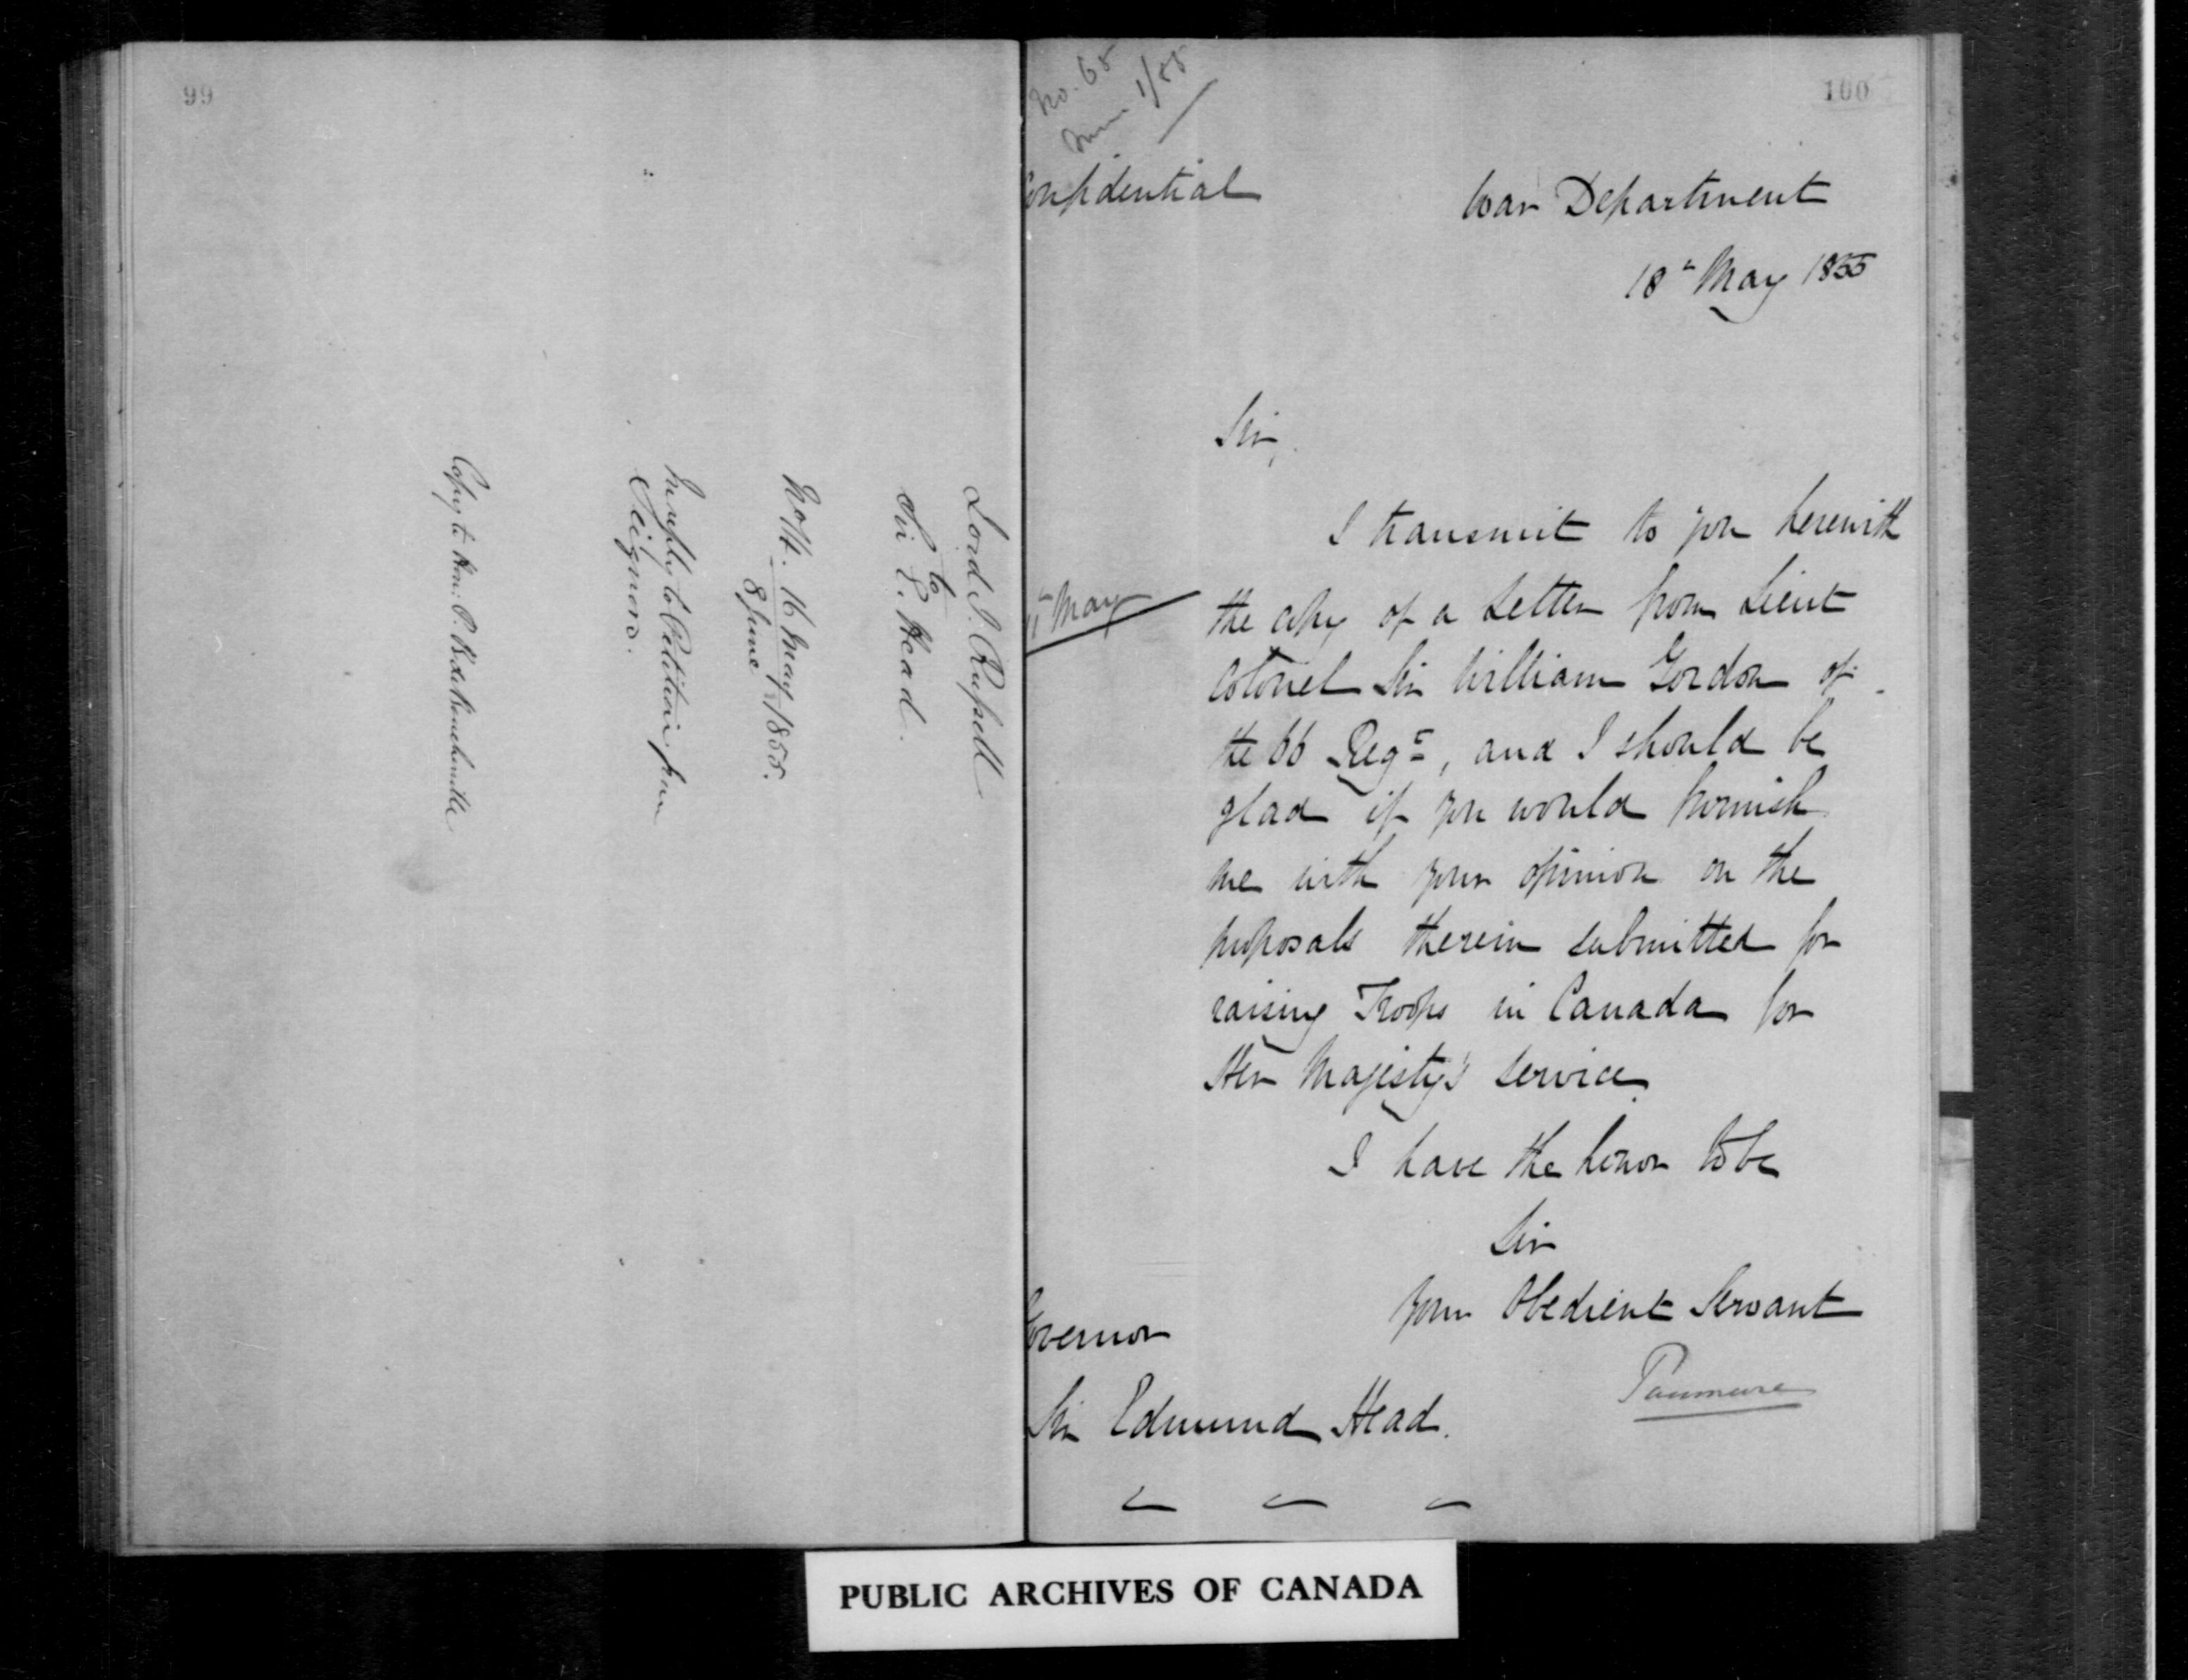 99
Lord J. Russell
to
Sir E. Head.
No 74. 16 May 1855.
8 June
In reply to Petition from
Seigneurs.
Copy to Hon: P. B. de Boucherville
100
No. 65
1/55
Confidential
War Department
18th May 1855
Sir,
I transmit to you herewith
May
the copy of a Letter from Lieut
Colonel Sir William Gordon of
the 66 Regt, and I should be
glad if you would furnish
me with your opinion on the
proposals therein submitted for
raising Troops in Canada for
Her Majesty's Service.
I have the honor to be
Sir
Your Obedient Servant
Panmure
Governor
Sir Edmund Head.
PUBLIC ARCHIVES OF CANADA